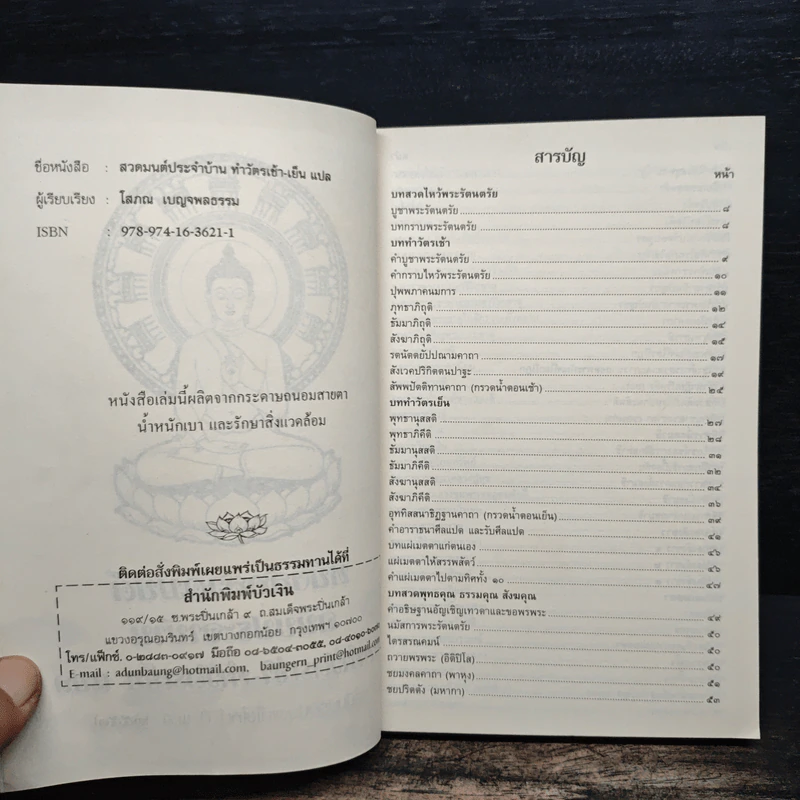 ชื่อหนังสือ : สวดมนต์ประจำบ้าน ทำวัตรเช้า-เย็น แปล
ผู้เรียบเรียง : โสภณ เบญจพลธรรม
ISBN : 978-974-16-3621-1
หนังสือเล่มนี้ผลิตจากกระดาษถนอมสายตา
น้ำหนักเบา และรักษาสิ่งแวดล้อม
ติดต่อสั่งพิมพ์เผยแพร่เป็นธรรมทานได้ที่
สำนักพิมพ์บัวเงิน
๑๑๙/๑๕ ซ.พระปิ่นเกล้า ๙ ถ.สมเด็จพระปิ่นเกล้า
แขวงอรุณอมรินทร์ เขตบางกอกน้อย กรุงเทพฯ ๑๐๗๐๐
โทร/แฟ็กซ์. ๐-๒๘๘๓-๐๙๑๗ มือถือ ๐๘-๖๕๐๔-๓๐๕๕,
E-mail : adunbaung@hotmail.com, baungern_print@hotmail.com
สารบัญ
หน้า
บทสวดไหว้พระรัตนตรัย
บูชาพระรัตนตรัย ๘
บทกราบพระรัตนตรัย ๘
บททำวัตรเช้า
คำบูชาพระรัตนตรัย ๙
คำกราบไหว้พระรัตนตรัย ๑๐
ปุพพภาคนมการ ๑๑
ภุทธาภิถุติ ๑๒
ธัมมาภิถุติ ๑๔
สังฆาภิถุติ ๑๕
รตนัตตยัปปณามคาถา ๑๗
สังเวคปริกิตตนปาฐะ ๑๙
สัพพปัตติทานคาถา (กรวดน้ำตอนเช้า) ๒๕
บททำวัตรเย็น
พุทธานุสสติ ๒๗
พุทธาภิคีติ ๒๘
ธัมมานุสสติ ๓๑
ธัมมาภิคีติ ๓๒
สังฆานุสสติ ๓๔
สังฆาภิคีติ ๓๖
อุททิสสนาธิฏฐานคาถา (กรวดน้ำตอนเย็น) ๓๙
คำอาราธนาศีลแปด และรับศีลแปด ๔๑
บทแผ่เมตตาแก่ตนเอง ๔๖
แผ่เมตตาให้สรรพสัตว์ ๔๖
คำแผ่เมตตาไปตามทิศทั้ง ๑๐ ๔๗
บทสวดพุทธคุณ ธรรมคุณ สังฆคุณ
คำอธิษฐานอัญเชิญเทวดาและขอพรพระ ๔๙
นมัสการพระรัตนตรัย ๕๐
ไตรสรณคมน์ ๕๐
ถวายพรพระ (อิติปิโส) ๕๐
ชยมงคลคาถา (พาหุง) ๕๑
ชยปริตตัง (มหากา) ๕๓